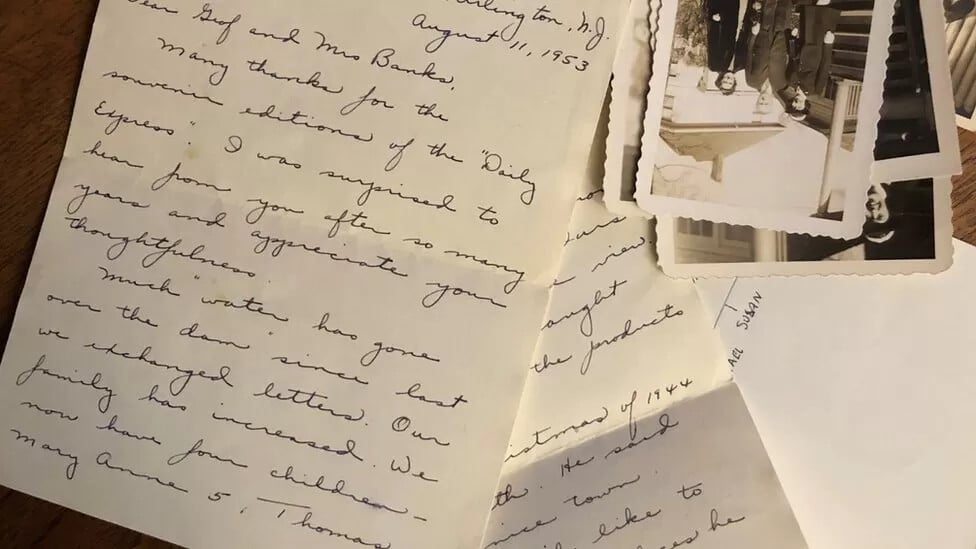 Arlington, N.J.
August 11, 1953
Dear Geof and Mrs Banks,
Many thanks for the
souvenir editions of the "Daily
Express". I was surprised to
hear from you after so many
years and appreciate your
thoughtfulness.
Much "water has gone
over the dam" since last
we exchanged letters. Our
family has increased. We
now have four children -
Mary Anne 5, Thomas
view.
the products
istmas of 1944
th. He said
nice town.
like to
he
SUSAN